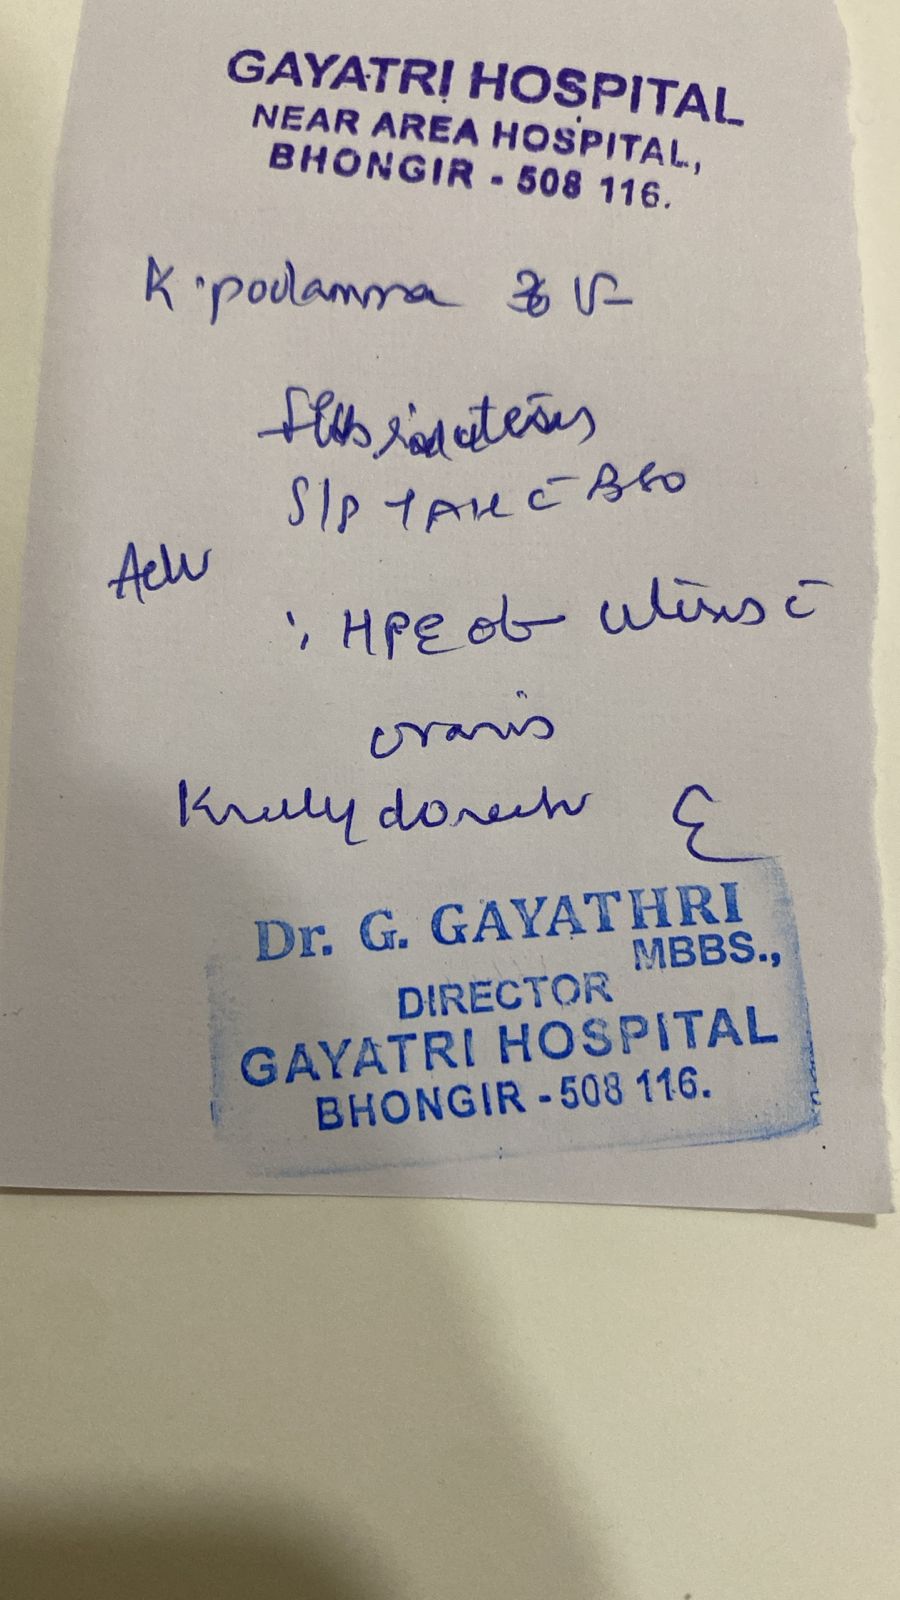 GAYATRI HOSPITAL
NEAR AREA HOSPITAL,
BHONGIR - 508 116.
K. podamma
S/P TAH c̄ BSO
Adv
: HPE of uterus c̄
ovaris
Kindly do needful
Dr. G. GAYATHRI
MBBS.,
DIRECTOR
GAYATRI HOSPITAL
BHONGIR - 508 116.